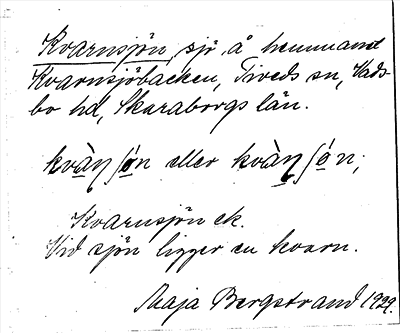 Kvarnsjön, sjö å hemmanet
Kvarnsjöbacken, Tiveds sn, Vads-
bo hd, Skaraborgs län.
kvàṇʃón eller kvàṇʃón;
Kvarnsjön ek.
Vid sjön ligger en kvarn.
Maja Bergstrand 1929.